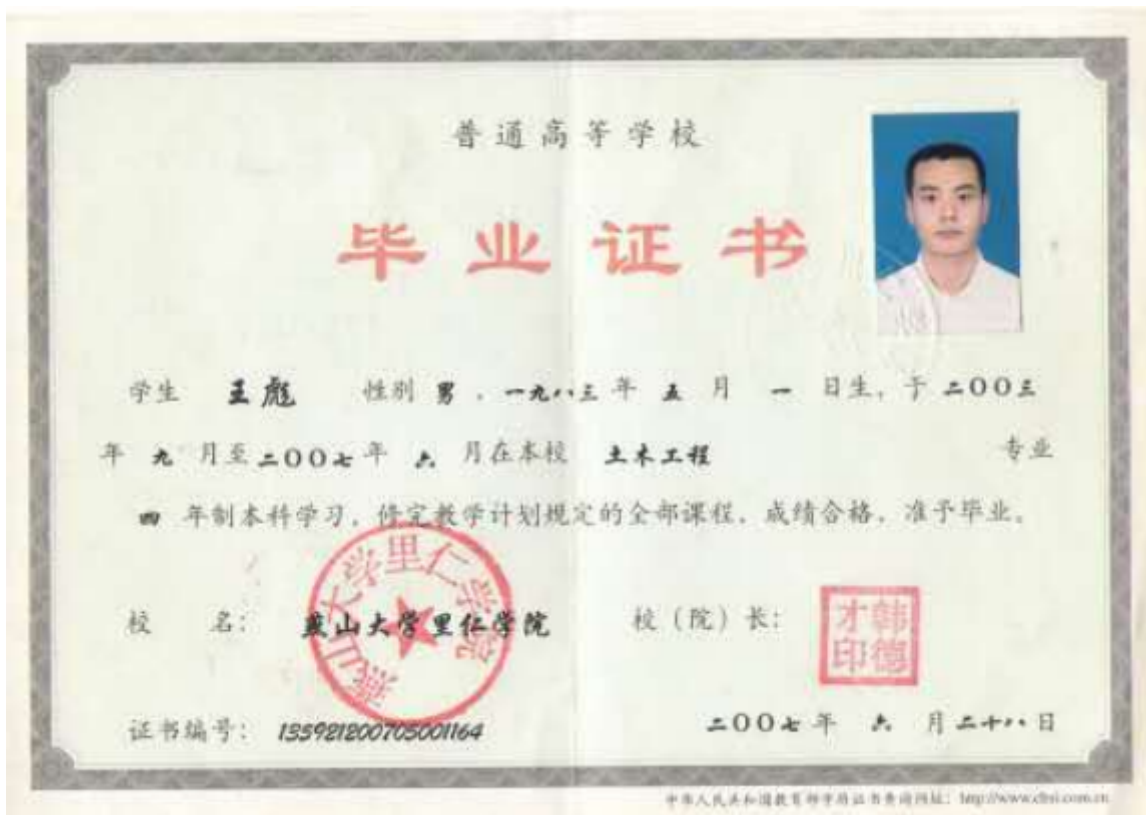 普通高等学校
毕业证书
学生 王彪 性别 男，一九八三年 五 月 一 日生，于二〇〇三
年 九 月至二〇〇七年 六 月在本校 土木工程 专业
四 年制本科学习，修完教学计划规定的全部课程，成绩合格，准予毕业。
校 名：燕山大学里仁学院 校（院）长：
燕山大学里仁学院
韩德才印
证书编号：133921200705001164 二〇〇七年 六 月二十八日
中华人民共和国教育部学历证书查询网址：http://www.chsi.com.cn